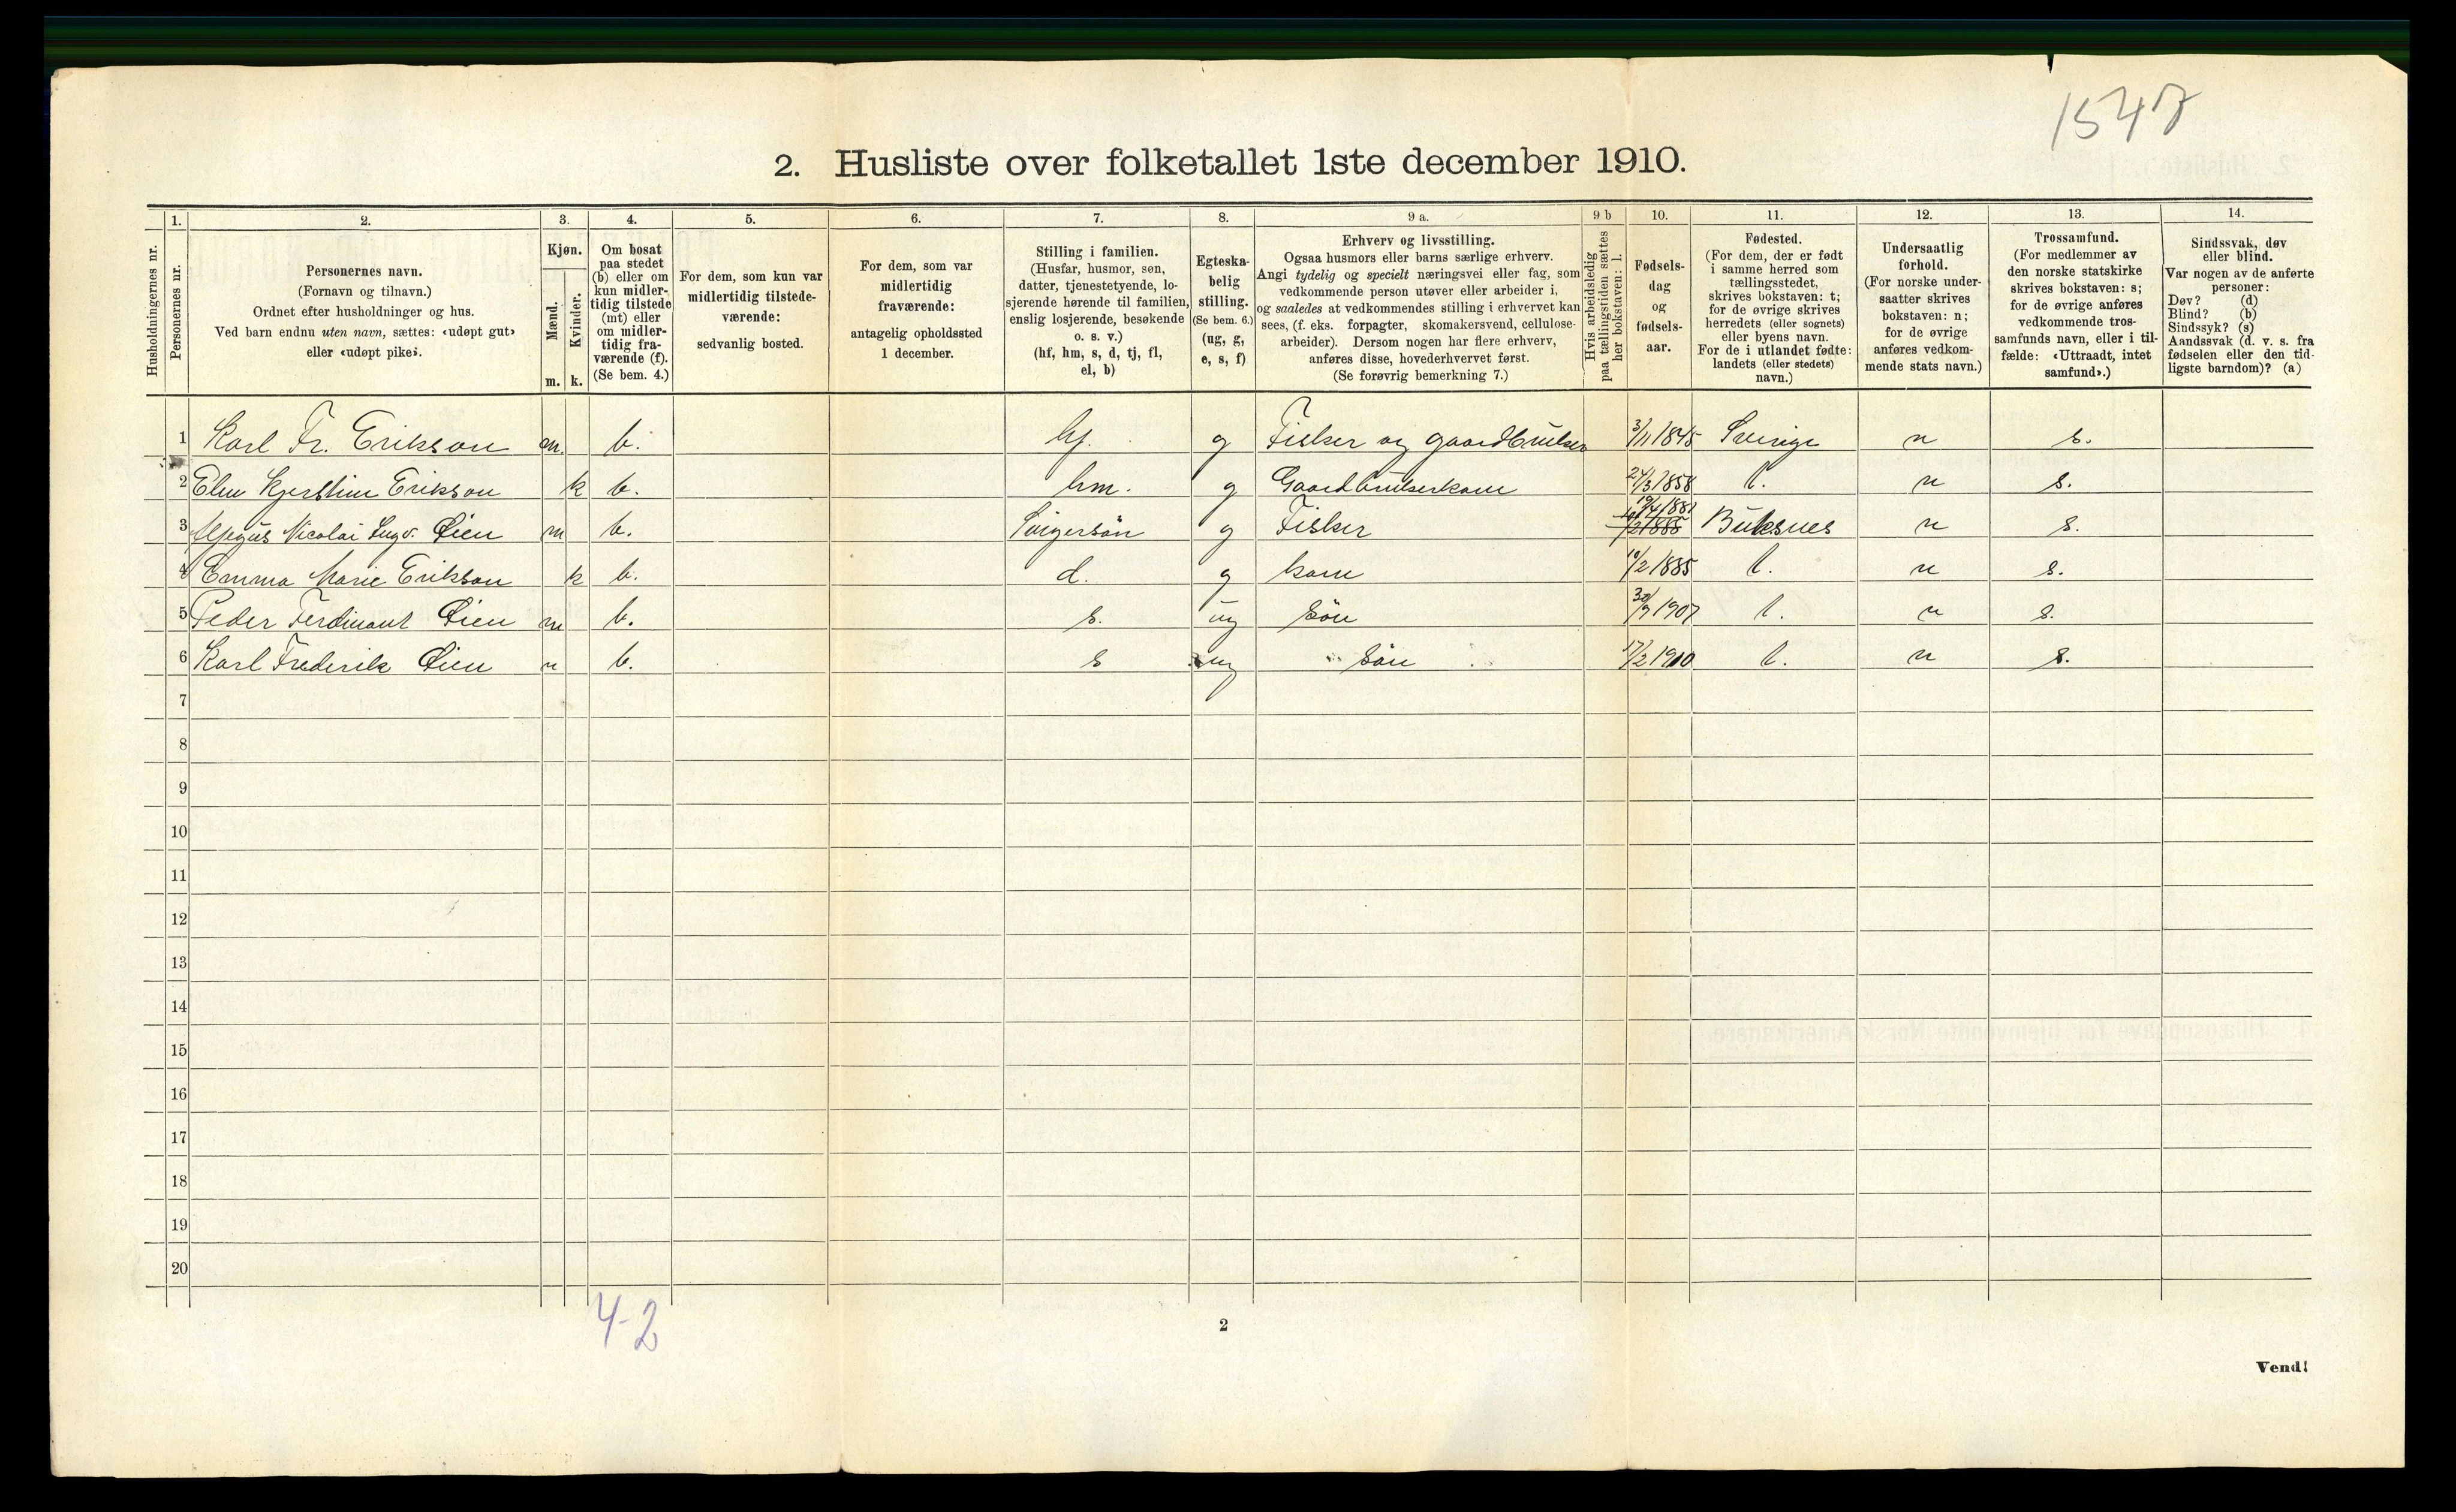 1547
2. Husliste over folketallet 1ste december 1910.
Husholdningernes nr.
1. Personernes nr.
2. Personernes navn.
(Fornavn og tilnavn.)
Ordnet efter husholdninger og hus.
Ved barn endnu uten navn, sættes: «udøpt gut»
eller «udøpt pike».
3. Kjøn.
Mænd. m.
Kvinder. k.
4. Om bosat
paa stedet
(b) eller om
kun midler-
tidig tilstede
(mt) eller
om midler-
tidig fra-
værende (f).
(Se bem. 4.)
5. For dem, som kun var
midlertidig tilstede-
værende:
sedvanlig bosted.
6. For dem, som var
midlertidig
fraværende:
antagelig opholdssted
1 december.
7. Stilling i familien.
(Husfar, husmor, søn,
datter, tjenestetyende, lo-
sjerende hørende til familien,
enslig losjerende, besøkende
o. s. v.)
(hf, hm, s, d, tj, fl,
el, b)
8. Egteska-
belig
stilling.
(Se bem. 6.)
(ug, g,
e, s, f)
9 a. Erhverv og livsstilling.
Ogsaa husmors eller barns særlige erhverv.
Angi tydelig og specielt næringsvei eller fag, som
vedkommende person utøver eller arbeider i,
og saaledes at vedkommendes stilling i erhvervet kan
sees, (f. eks. forpagter, skomakersvend, cellulose-
arbeider). Dersom nogen har flere erhverv,
anføres disse, hovederhvervet først.
(Se forøvrig bemerkning 7.)
9 b Hvis arbeidsledig
paa tællingstiden sættes
her bokstaven: l.
10. Fødsels-
dag
og
fødsels-
aar.
11. Fødested.
(For dem, der er født
i samme herred som
tællingsstedet,
skrives bokstaven: t;
for de øvrige skrives
herredets (eller sognets)
eller byens navn.
For de i utlandet fødte:
landets (eller stedets)
navn.)
12. Undersaatlig
forhold.
(For norske under-
saatter skrives
bokstaven: n;
for de øvrige
anføres vedkom-
mende stats navn.)
13. Trossamfund.
(For medlemmer av
den norske statskirke
skrives bokstaven: s;
for de øvrige anføres
vedkommende tros-
samfunds navn, eller i til-
fælde: «Uttraadt, intet
samfund».)
14. Sindssvak, døv
eller blind.
Var nogen av de anførte
personer:
Døv? (d)
Blind? (b)
Sindssyk? (s)
Aandssvak (d. v. s. fra
fødselen eller den tid-
ligste barndom)? (a)
1 Karl Fr. Erikson m. b. hf. g Fisker og gaardbruker 3/11 1845 Sverige n s.
2 Elen Kjerstine Erikson k b. hm. g Gaardbrukerkone 24/3 1858 t. n s.
3 Nicolai Ingv. Øien m b. Svigersøn g Fisker Buksnes n s.
4 Emma Marie Erikson k b. d. g kone 10/2 1885 t. n s.
5 Peder Ferdinant Øien m b. s. ug Søn 30/9 1907 t. n s.
6 Karl Frederik Øien m b. s ug Søn 17/2 1910 t. n s.
7
8
9
10
11
12
13
14
15
16
17
18
19
20
4-2
2
Vend!